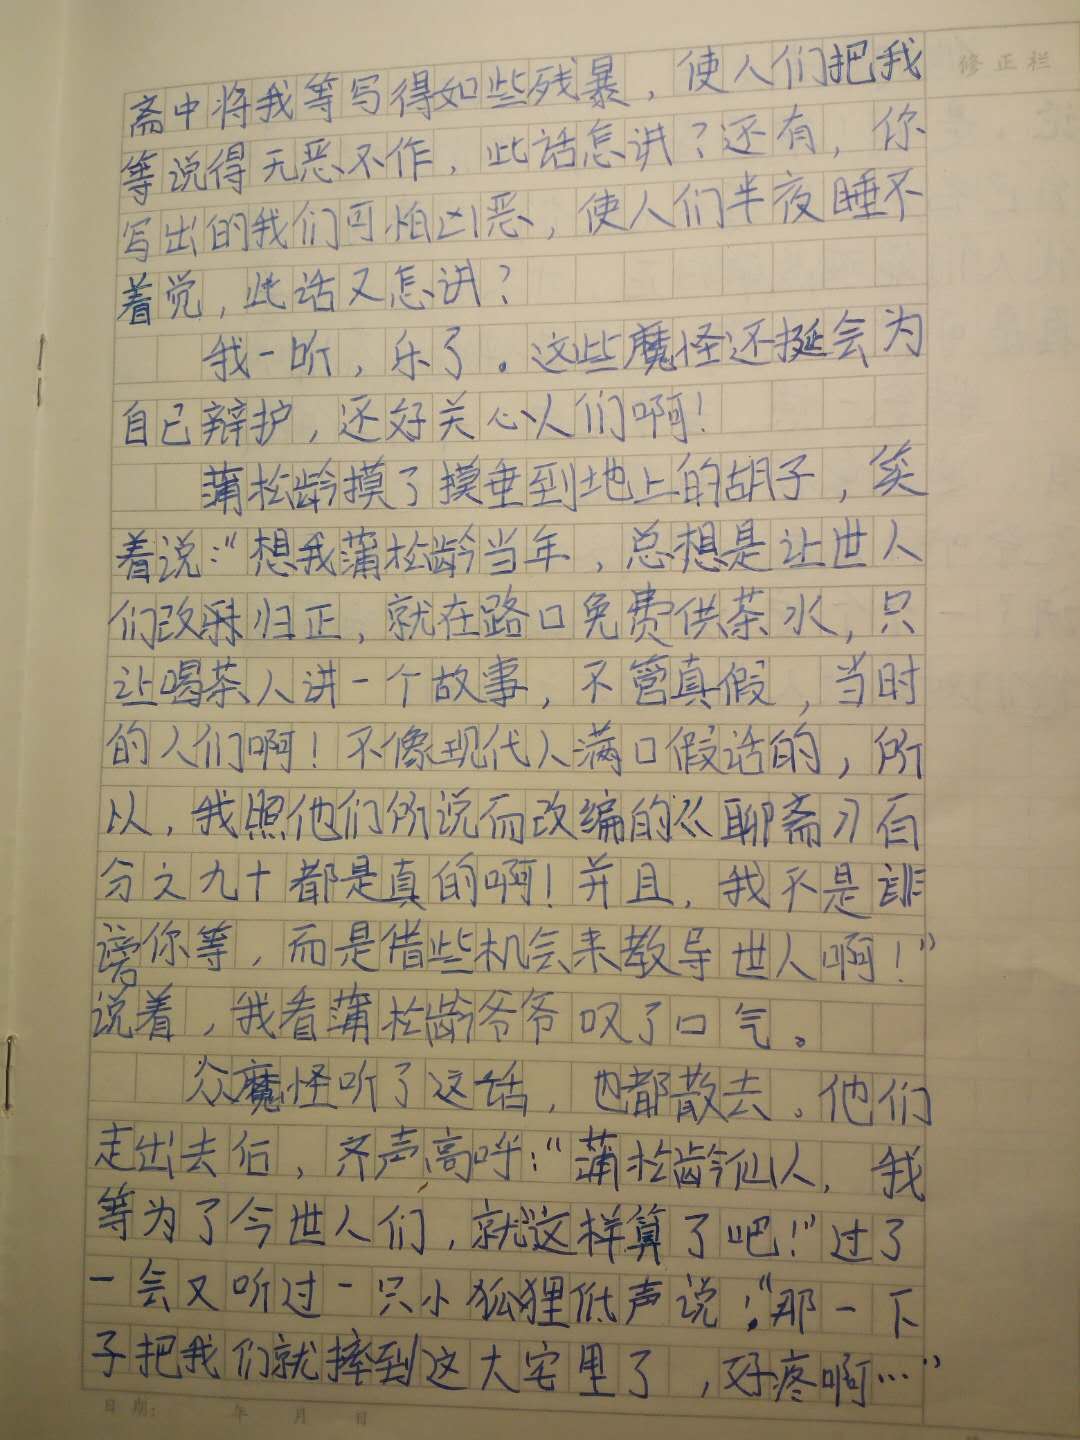 修正栏
斋中将我等写得如些残暴，使人们把我
等说得无恶不作，此话怎讲？还有，你
写出的我们可怕凶恶，使人们半夜睡不
着觉，此话又怎讲？
我一听，乐了。这些魔怪还挺会为
自已辩护，还好关心人们啊！
蒲松龄摸了摸垂到地上的胡子，笑
着说：“想我蒲松龄当年，总想是让世人
们改邪归正，就在路口免费供茶水，只
让喝茶人讲一个故事，不管真假，当时
的人们啊！不像现代人满口假话的，所
以，我照他们所说而改编的《聊斋》百
分之九十都是真的啊！并且，我不是诽
谤你等，而是借些机会来教导世人啊！”
说着，我看蒲松龄爷爷叹了口气。
众魔怪听了这话，也都散去。他们
走出去后，齐声高呼：“蒲松龄仙人，我
等为了今世人们，就这样算了吧！”过了
一会又听过一只小狐狸低声说：“那一下
子把我们就摔到这大宅里了，好疼啊…”
日期：　年　月　日